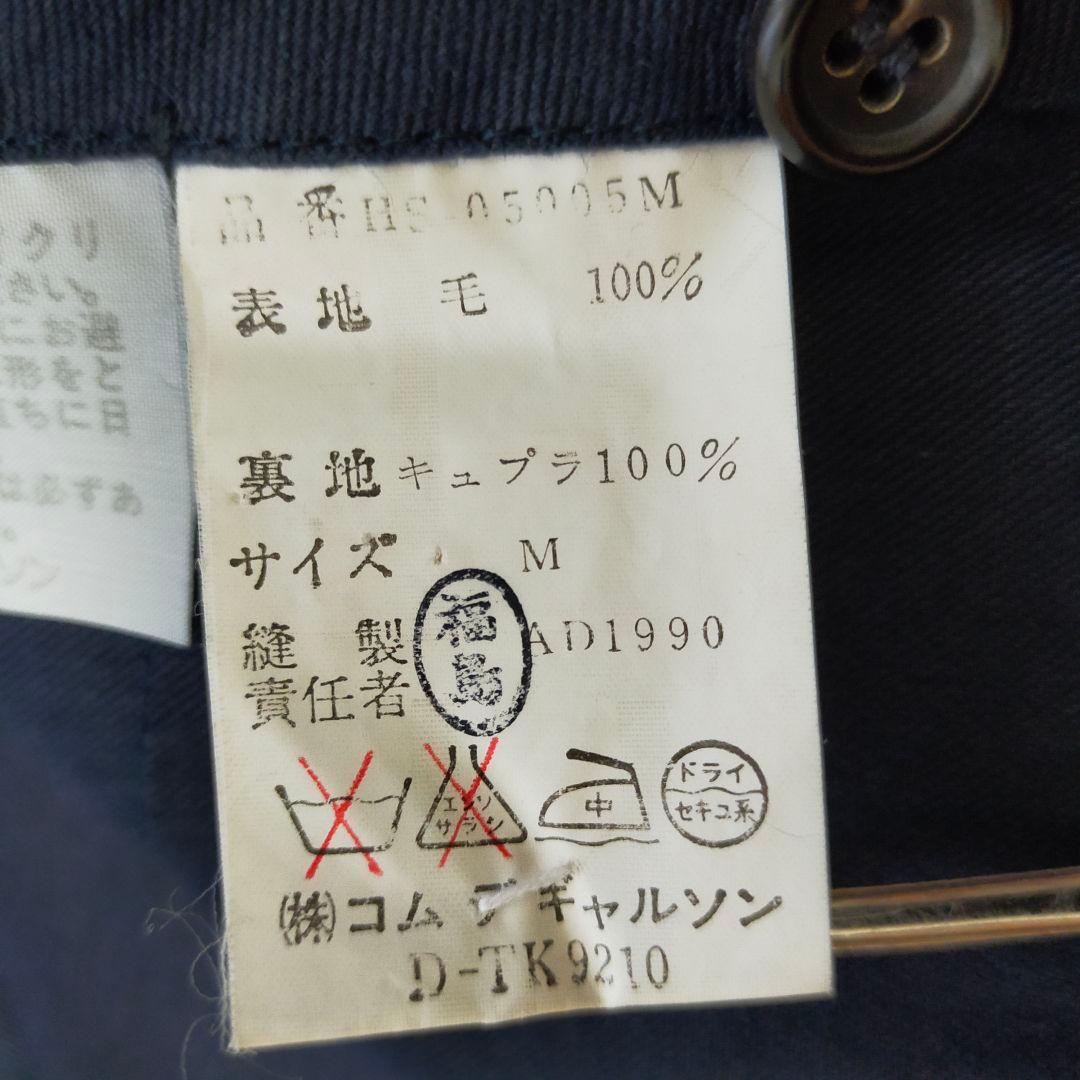 クリ
さい。
にお選
形をと
ちに日
は必ずあ
ソン
品番HS-05005M
表地 毛 100%
裏地 キュプラ100%
サイズ M
縫製 福島 AD1990
責任者
エンソ
サラシ
中
ドライ
セキユ系
㈱コム デ ギャルソン
D-TK9210